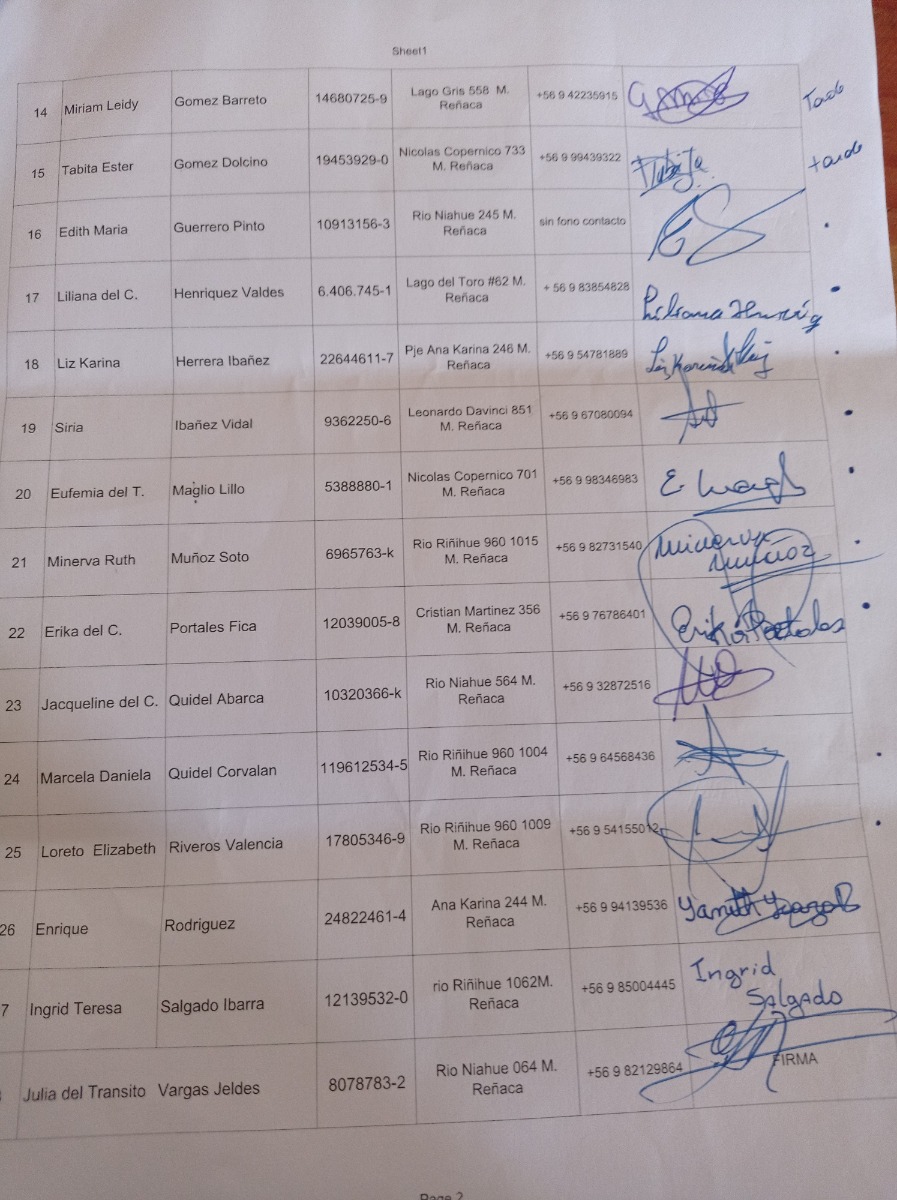 Sheet1
14 Miriam Leidy Gomez Barreto 14680725-9 Lago Gris 558 M. Reñaca +56 9 42235915 Tarde
15 Tabita Ester Gomez Dolcino 19453929-0 Nicolas Copernico 733 M. Reñaca +56 9 99439322 tarde
16 Edith Maria Guerrero Pinto 10913156-3 Rio Niahue 245 M. Reñaca sin fono contacto
17 Liliana del C. Henriquez Valdes 6.406.745-1 Lago del Toro #62 M. Reñaca + 56 9 83854828
18 Liz Karina Herrera Ibañez 22644611-7 Pje Ana Karina 246 M. Reñaca +56 9 54781889
19 Siria Ibañez Vidal 9362250-6 Leonardo Davinci 851 M. Reñaca +56 9 67080094
20 Eufemia del T. Maglio Lillo 5388880-1 Nicolas Copernico 701 M. Reñaca +56 9 98346983
21 Minerva Ruth Muñoz Soto 6965763-k Rio Riñihue 960 1015 M. Reñaca +56 9 82731540 Minerva Muñoz
22 Erika del C. Portales Fica 12039005-8 Cristian Martinez 356 M. Reñaca +56 9 76786401 Erika Portales
23 Jacqueline del C. Quidel Abarca 10320366-k Rio Niahue 564 M. Reñaca +56 9 32872516
24 Marcela Daniela Quidel Corvalan 119612534-5 Rio Riñihue 960 1004 M. Reñaca +56 9 64568436
25 Loreto Elizabeth Riveros Valencia 17805346-9 Rio Riñihue 960 1009 M. Reñaca +56 9 54155012
26 Enrique Rodriguez 24822461-4 Ana Karina 244 M. Reñaca +56 9 94139536
7 Ingrid Teresa Salgado Ibarra 12139532-0 rio Riñihue 1062M. Reñaca +56 9 85004445 Ingrid Salgado
Julia del Transito Vargas Jeldes 8078783-2 Rio Niahue 064 M. Reñaca +56 9 82129864 FIRMA
Page 2